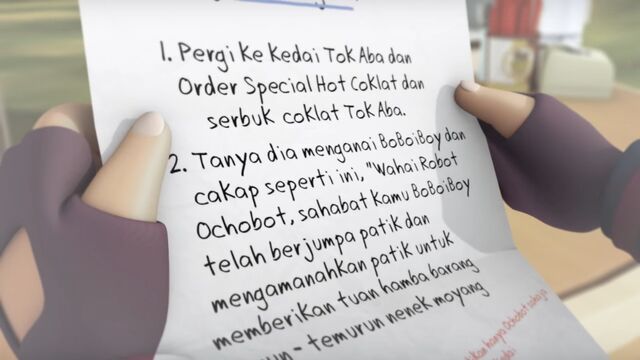 1. Pergi Ke Kedai Tok Aba dan
Order Special Hot Coklat dan
serbuk coklat Tok Aba.
2. Tanya dia menganai BoBoiBoy dan
cakap seperti ini, "Wahai Robot
Ochobot, sahabat kamu BoBoiBoy
telah berjumpa patik dan
mengamanahkan patik untuk
memberikan tuan hamba barang
- temurun nenek moyang
hanya Ochobot sahaja